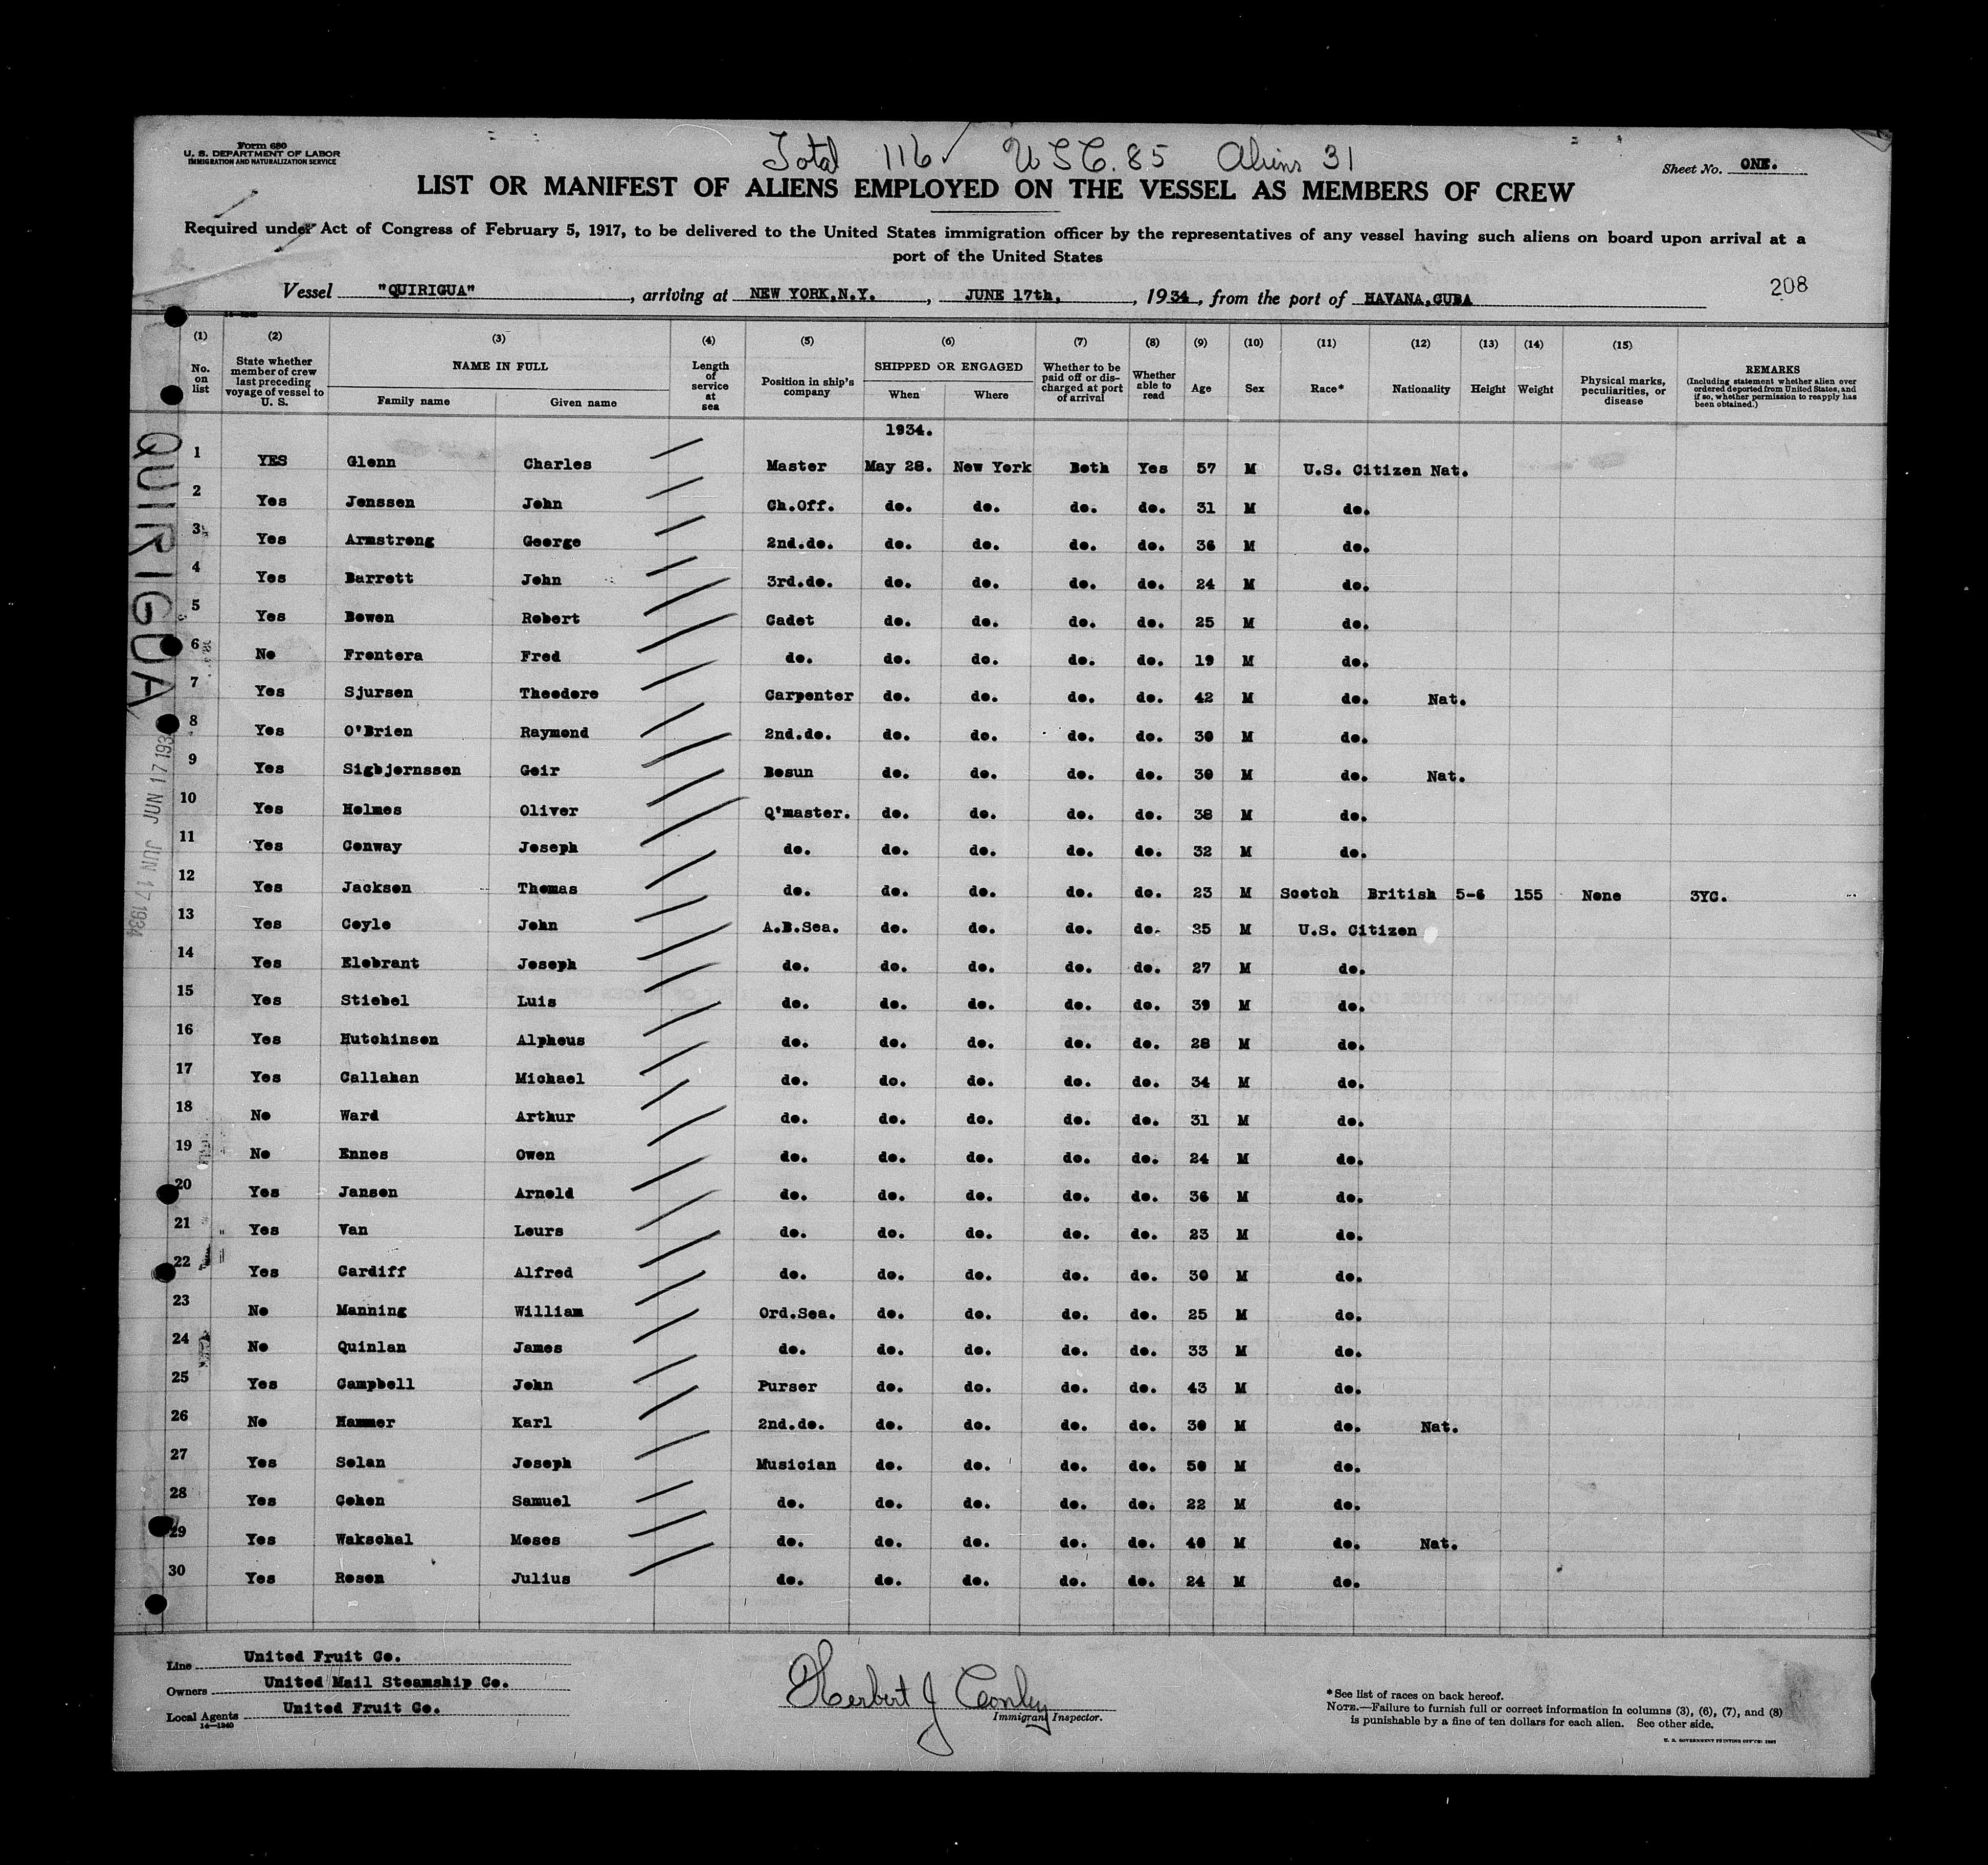 Form 680
U. S. DEPARTMENT OF LABOR
IMMIGRATION AND NATURALIZATION SERVICE
Total 116 U S C. 85 Aliens 31
Sheet No. ONE.
LIST OR MANIFEST OF ALIENS EMPLOYED ON THE VESSEL AS MEMBERS OF CREW
Required under Act of Congress of February 5, 1917, to be delivered to the United States immigration officer by the representatives of any vessel having such aliens on board upon arrival at a
port of the United States
208
Vessel "QUIRIGUA", arriving at NEW YORK,N.Y., JUNE 17th., 1934, from the port of HAVANA,CUBA
(1) (2) (3) (4) (5) (6) (7) (8) (9) (10) (11) (12) (13) (14) (15)
No. on list State whether member of crew last preceding voyage of vessel to U. S. NAME IN FULL Family name Given name Length of service at sea Position in ship's company SHIPPED OR ENGAGED When Where Whether to be paid off or discharged at port of arrival Whether able to read Age Sex Race* Nationality Height Weight Physical marks, peculiarities, or disease REMARKS (Including statement whether alien over ordered deported from United States, and if so, whether permission to reapply has been obtained.)
1934.
1 YES Glenn Charles Master May 28. New York Both Yes 57 M U.S. Citizen Nat.
2 Yes Jenssen John Ch.Off. do. do. do. do. 31 M do.
3 Yes Armstrong George 2nd.do. do. do. do. do. 36 M do.
4 Yes Barrett John 3rd.do. do. do. do. do. 24 M do.
5 Yes Bowen Robert Cadet do. do. do. do. 25 M do.
6 No Frontera Fred do. do. do. do. do. 19 M do.
7 Yes Sjursen Theodore Carpenter do. do. do. do. 42 M do. Nat.
8 Yes O'Brien Raymond 2nd.do. do. do. do. do. 30 M do.
9 Yes Sigbjornssen Geir Bosun do. do. do. do. 30 M do. Nat.
10 Yes Holmes Oliver Q'master. do. do. do. do. 38 M do.
11 Yes Conway Joseph do. do. do. do. do. 32 M do.
12 Yes Jackson Thomas do. do. do. do. do. 23 M Scotch British 5-6 155 None 3YC.
13 Yes Coyle John A.B.Sea. do. do. do. do. 25 M U.S. Citizen
14 Yes Elebrant Joseph do. do. do. do. do. 27 M do.
15 Yes Stiebel Luis do. do. do. do. do. 39 M do.
16 Yes Hutchinson Alpheus do. do. do. do. do. 28 M do.
17 Yes Callahan Michael do. do. do. do. do. 34 M do.
18 No Ward Arthur do. do. do. do. do. 31 M do.
19 No Ennes Owen do. do. do. do. do. 24 M do.
20 Yes Jansen Arnold do. do. do. do. do. 36 M do.
21 Yes Van Leurs do. do. do. do. do. 23 M do.
22 Yes Cardiff Alfred do. do. do. do. do. 30 M do.
23 No Manning William Ord.Sea. do. do. do. do. 25 M do.
24 No Quinlan James do. do. do. do. do. 33 M do.
25 Yes Campbell John Purser do. do. do. do. 43 M do.
26 No Hammer Karl 2nd.do. do. do. do. do. 30 M do. Nat.
27 Yes Solan Joseph Musician do. do. do. do. 50 M do.
28 Yes Cohen Samuel do. do. do. do. do. 22 M do.
29 Yes Wakschal Moses do. do. do. do. do. 40 M do. Nat.
30 Yes Rosen Julius do. do. do. do. do. 24 M do.
QUIRIGUA
JUN 17 193
JUN 17 1934
Line United Fruit Co.
Owners United Mail Steamship Co.
Local Agents United Fruit Co.
14—1240
Herbert J Conley
Immigrant Inspector.
*See list of races on back hereof.
NOTE.—Failure to furnish full or correct information in columns (3), (6), (7), and (8)
is punishable by a fine of ten dollars for each alien. See other side.
U. S. GOVERNMENT PRINTING OFFICE: